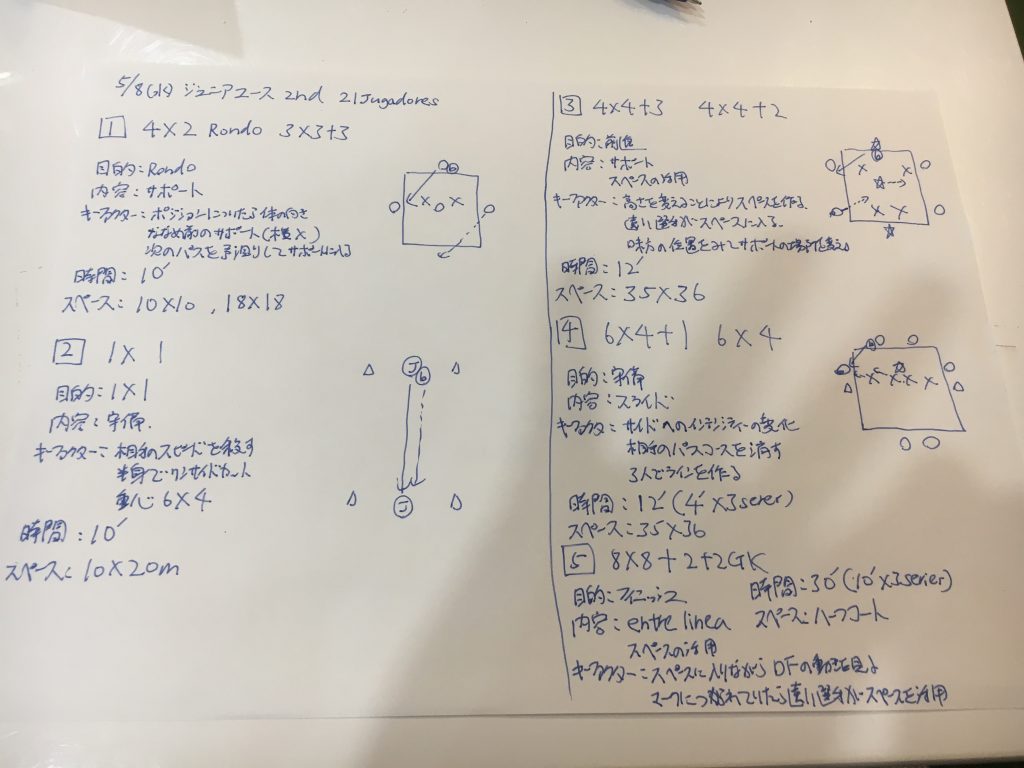 5/8(火) ジュニアユース 2nd 21 Jugadores
1 4×2 Rondo 3×3+3
目的:Rondo
内容:サポート
キーファクター:ポジションについたら体の向き
ななめ前のサポート(横×)
次のパスを予測してサポートに入る
時間:10′
スペース:10×10 , 18×18
2 1×1
目的:1×1
内容:守備.
キーファクター:相手のスピードを殺す
半身でワンサイドカット
重心6×4
時間:10′
スペース:10×20m
J
J
3 4×4+3 4×4+2
目的:前進
内容:サポート
スペースの活用
キーファクター:高さを変えることによりスペースを作る.
遠い選手がスペースに入る.
味方の位置をみてサポートの場所を変える。
時間:12′
スペース:35×36
4 6×4+1 6×4
目的:守備
内容:スライド
キーファクター:サイドへのインテンシティーの変化
相手のパスコースを消す
3人でラインを作る
時間:12′(4′×3serier)
スペース:35×36
5 8×8+2+2GK
目的:フィニッシュ
時間:30′(10′×3serier)
内容:entre linea
スペース:ハーフコート
スペースの活用
キーファクター:スペースに入りながらDFの動きを見る
マークにつかれていたら遠い選手がスペースを活用